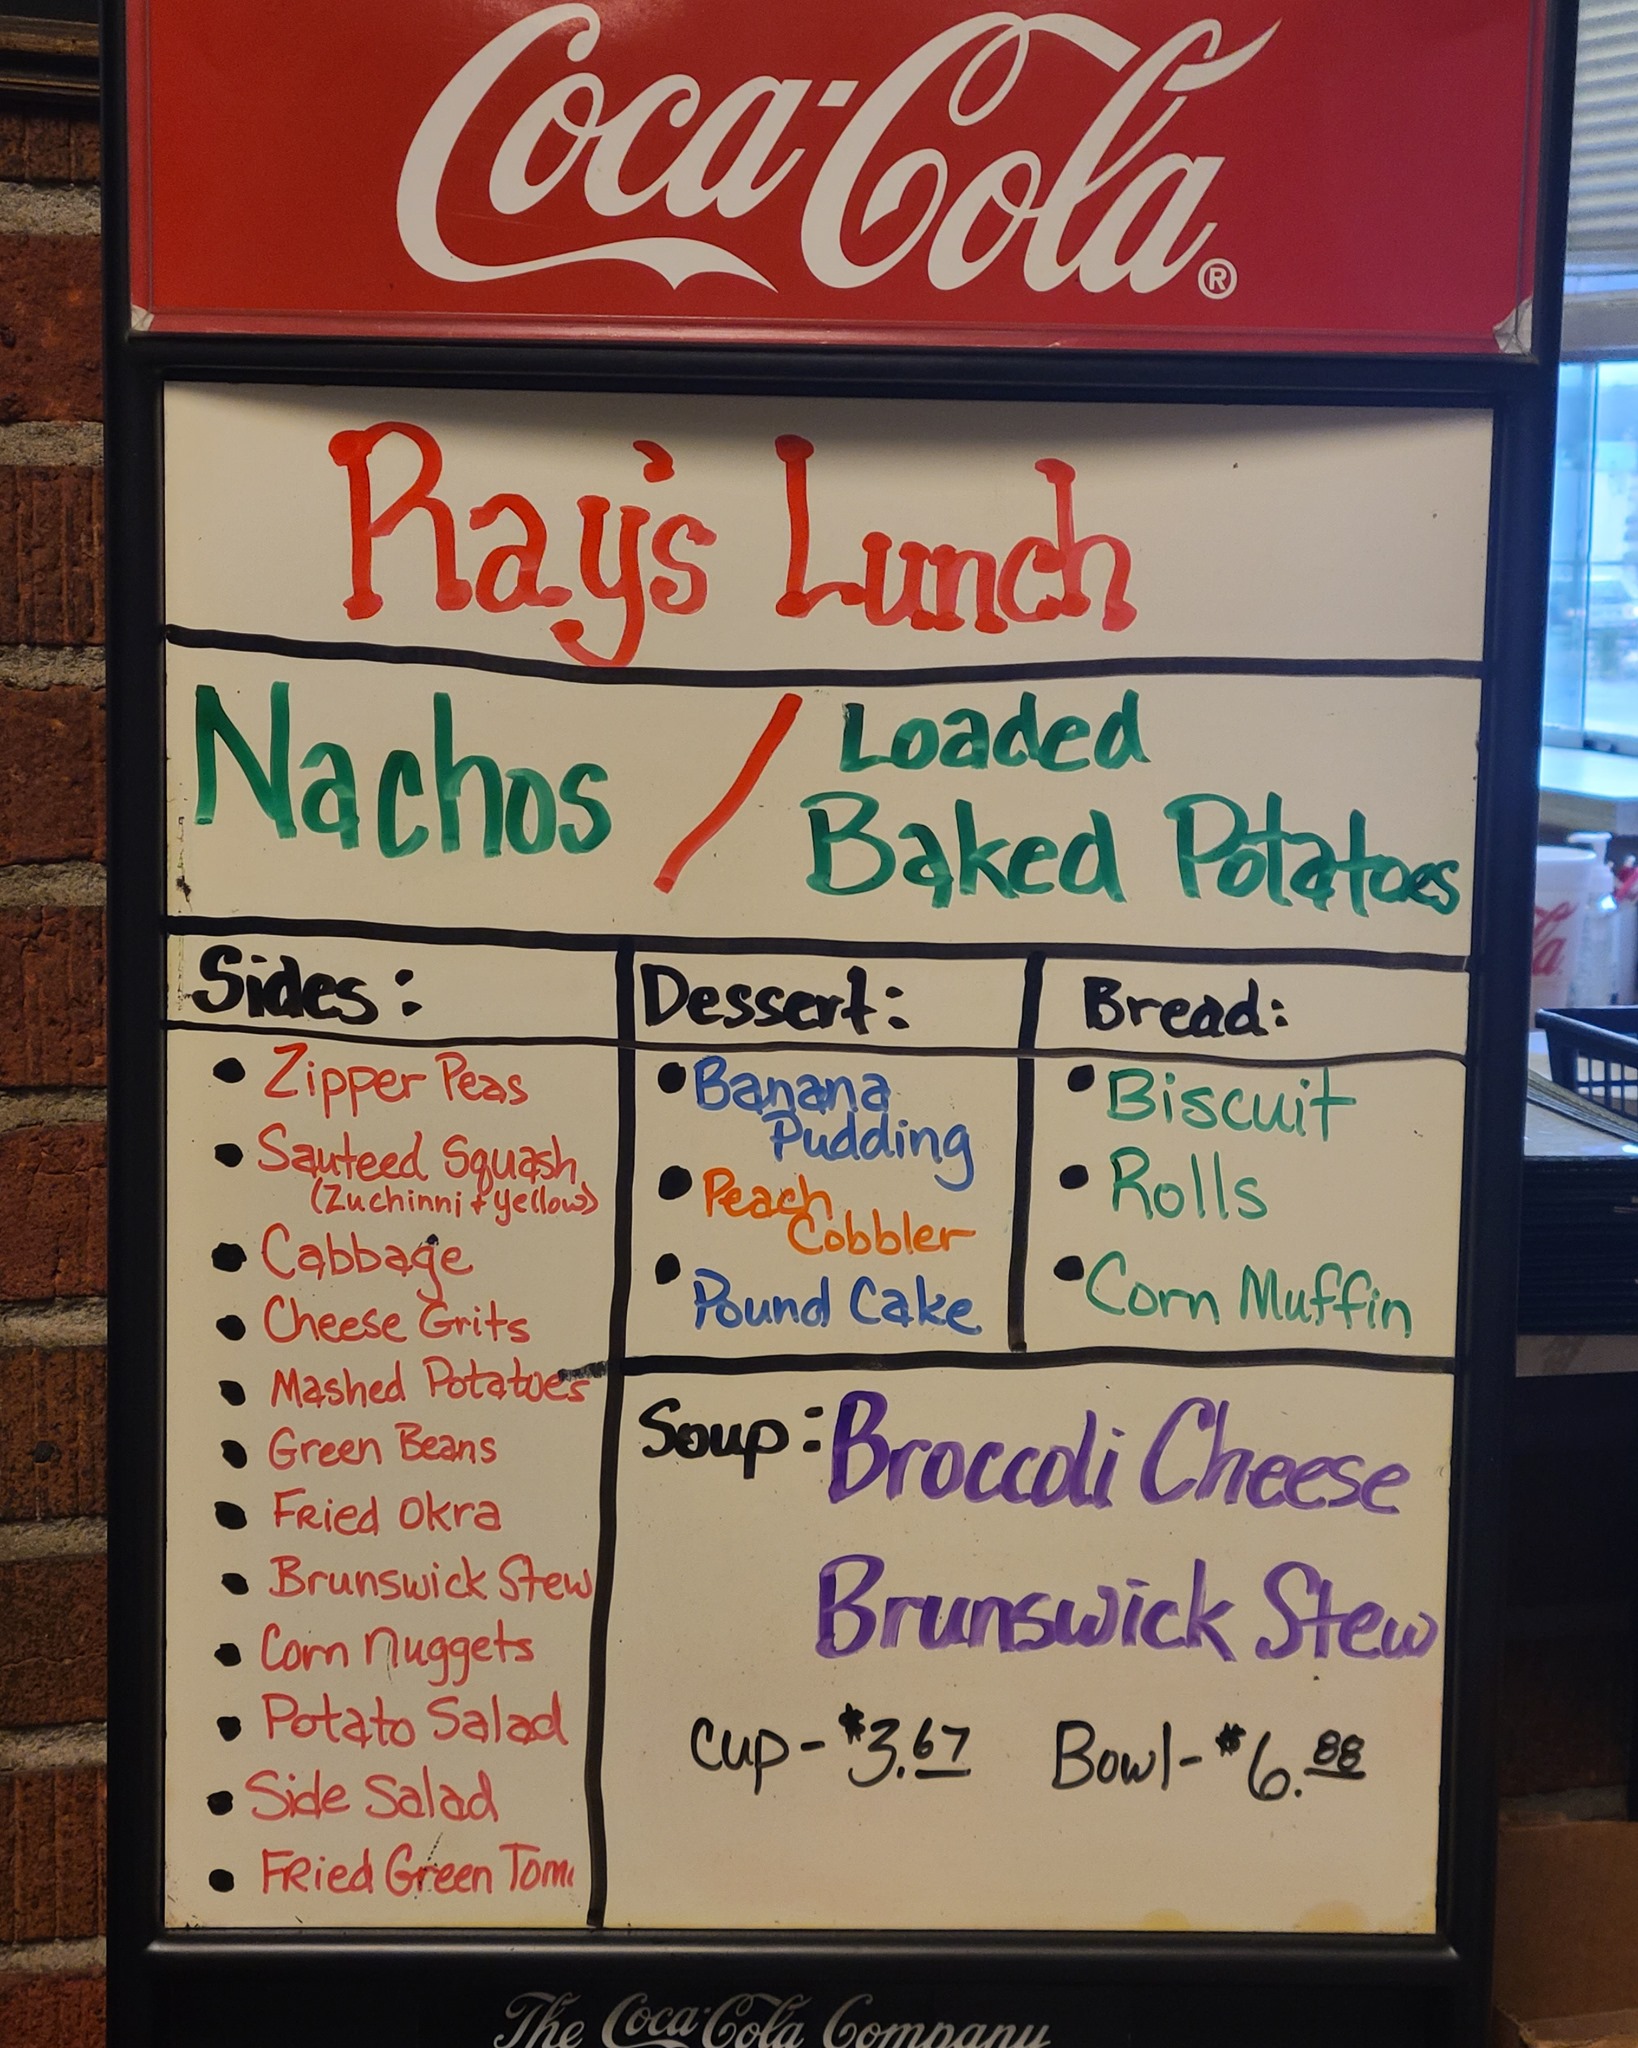 Coca-Cola®
Ray's Lunch
Nachos / Loaded
Baked Potatoes
Sides:
• Zipper Peas
• Sauteed Squash
(Zuchinni + yellow)
• Cabbage
• Cheese Grits
• Mashed Potatoes
• Green Beans
• Fried Okra
• Brunswick Stew
• Corn Nuggets
• Potato Salad
• Side Salad
• Fried Green Tom
Dessert:
• Banana
Pudding
• Peach
Cobbler
• Pound Cake
Bread:
• Biscuit
• Rolls
• Corn Muffin
Soup: Broccoli Cheese
Brunswick Stew
Cup - $3.67 Bowl - $6.88
The Coca-Cola Company